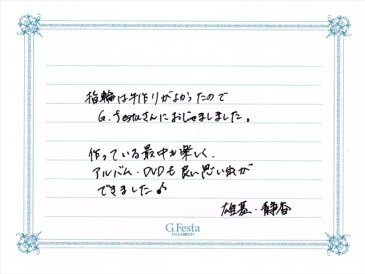 指輪は手作りがよかったので
G.festaさんにおじゃましました。
作っている最中も楽しく、
アルバム・DVDも良い思い出が
できました♪
雄基・静香
G.Festa
DIAMOND